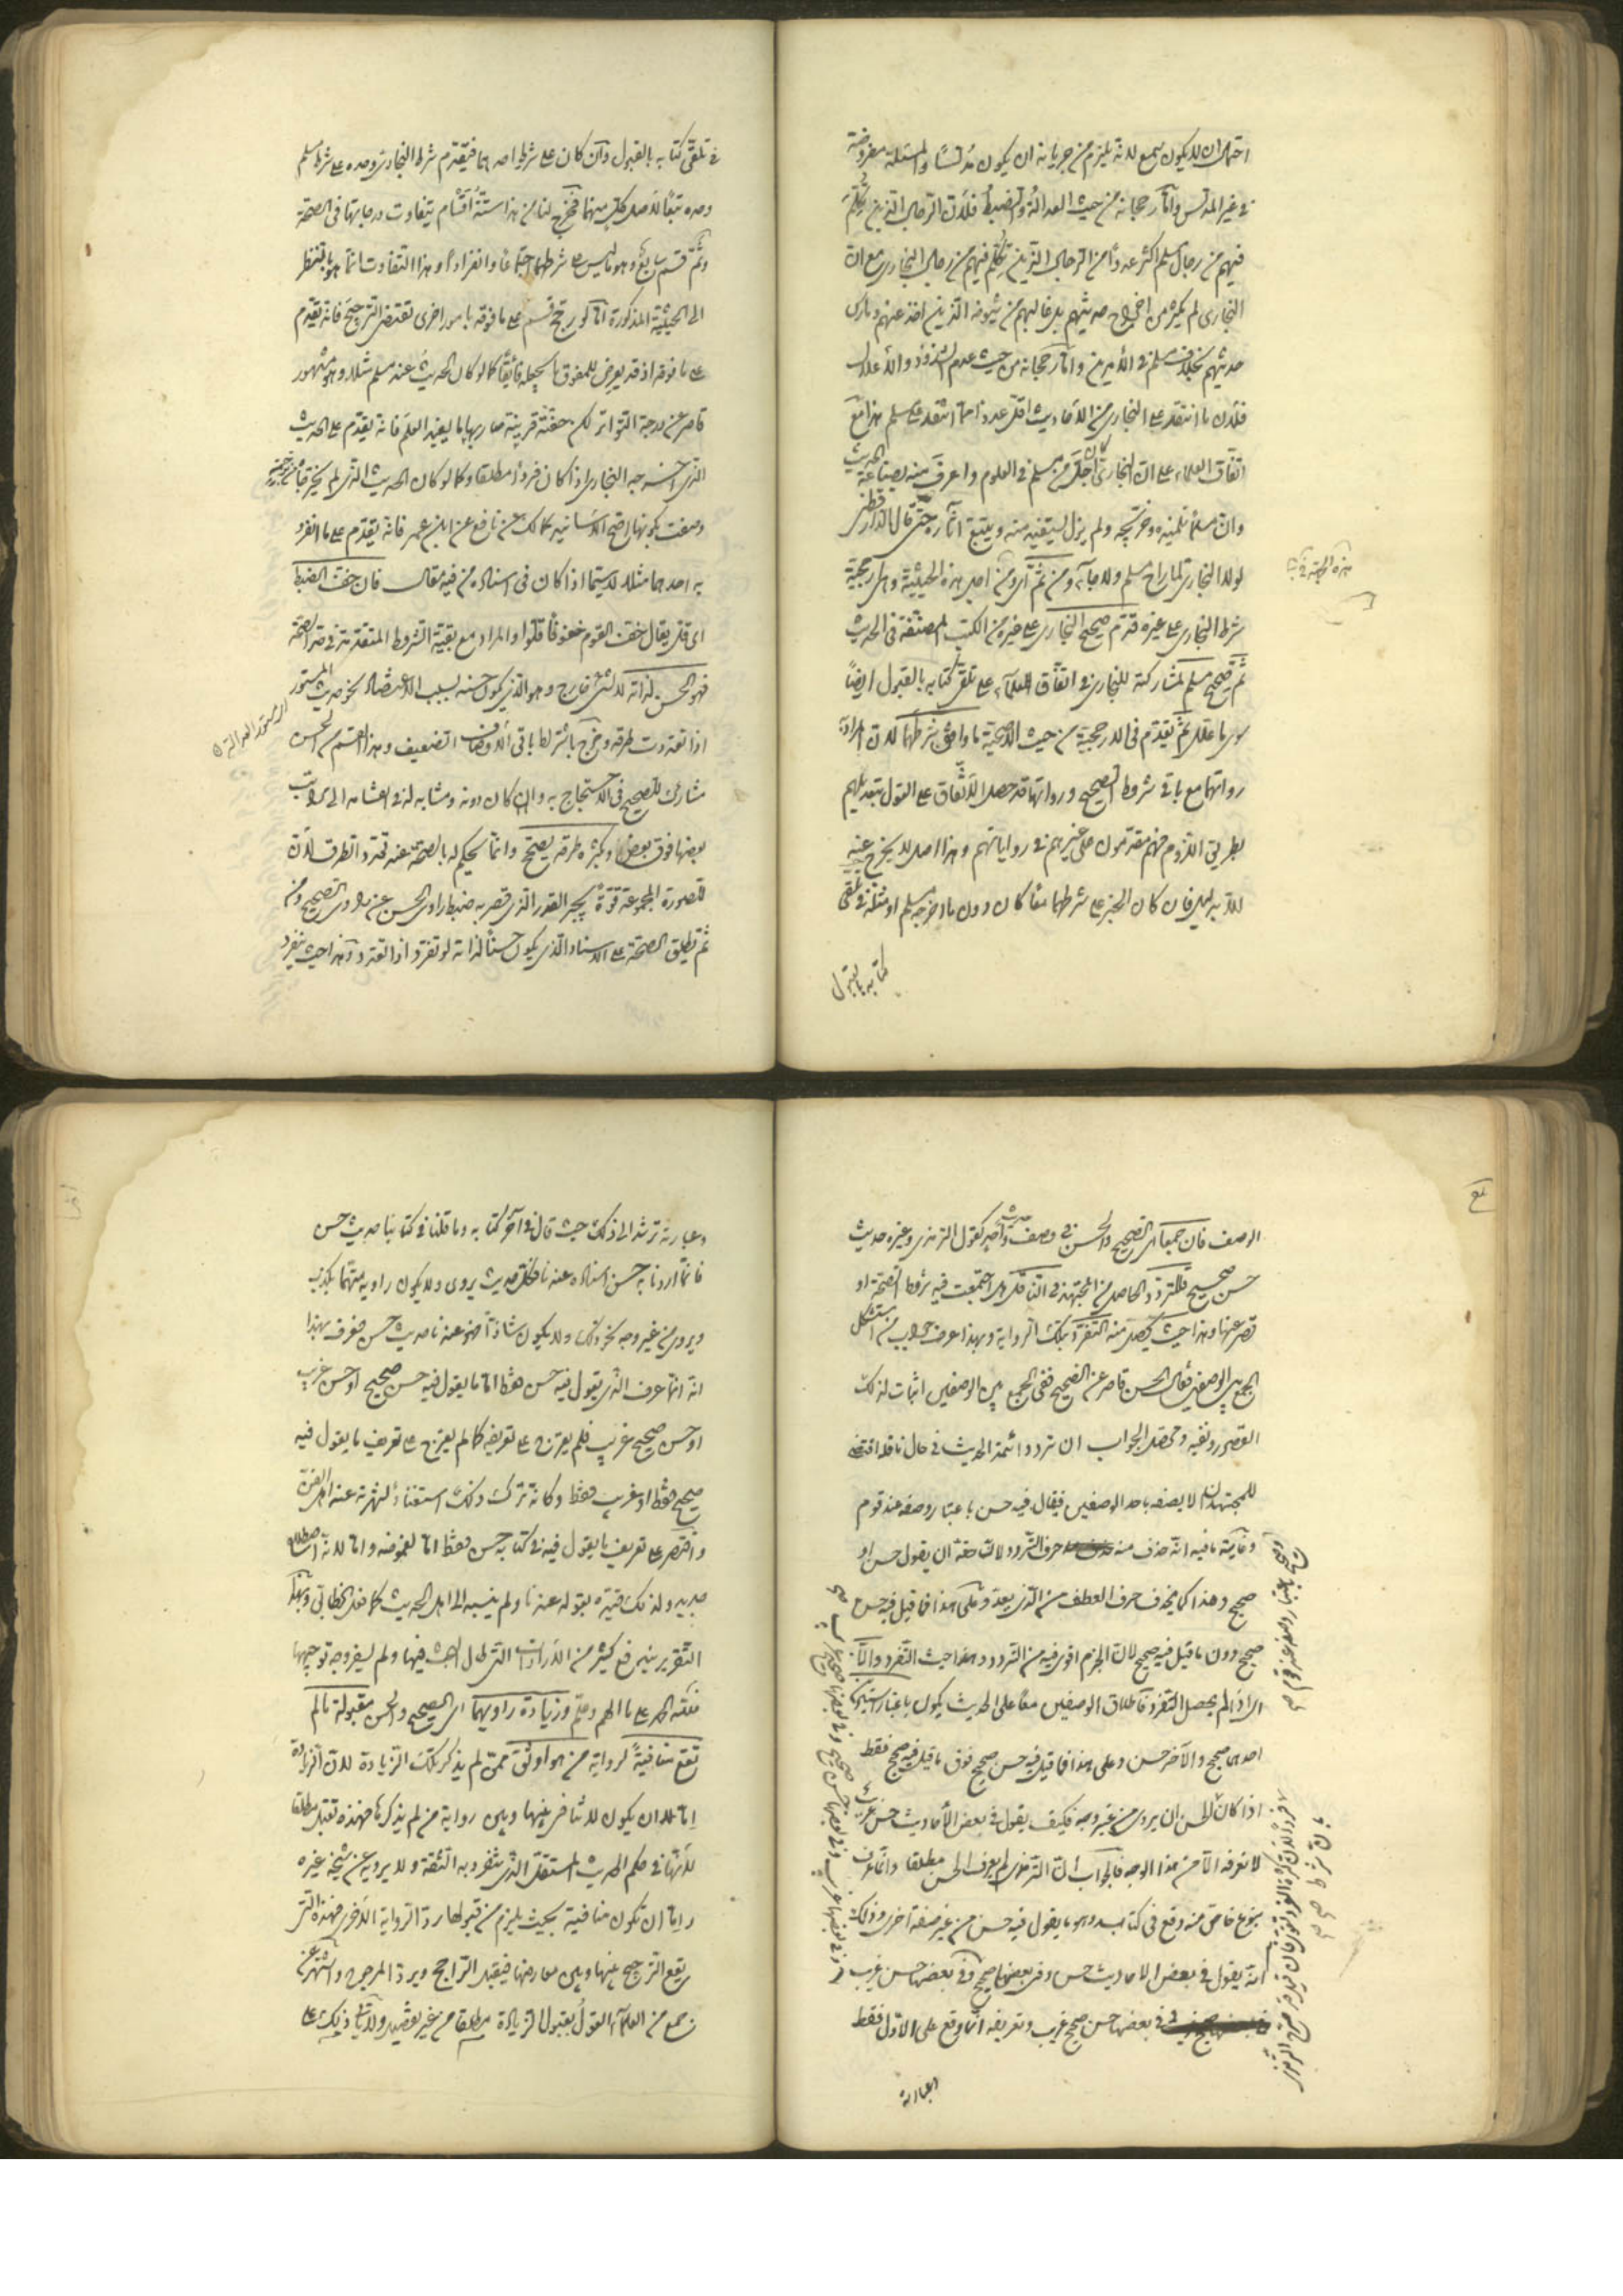 احتمال ان لا يكون سمع لانه يلزم من جريانه ان يكون مدلسا والمسئلة مفروضة
في غير المدلس وأما رجحانه من حيث العدالة والضبط فلأن الرجال الذين تكلم
فيهم من رجال مسلم اكثر عددا من الرجال الذين تكلم فيهم من رجال البخاري مع ان
البخاري لم يكثر من اخراج حديثهم بل غالبهم من شيوخه الذين اخذ عنهم ومارس
حديثهم بخلاف مسلم في الأمرين واما رجحانه من حيث عدم الشذوذ والاعلال
فلأن ما انتقد على البخاري من الأحاديث اقل عددا مما انتقد على مسلم هذا مع
اتفاق العلماء على ان البخاري كان اجل من مسلم في العلوم واعرف منه بصناعة الحديث
وان مسلما تلميذه وخريجه ولم يزل يستفيد منه ويتتبع آثاره حتى قال الدارقطني
لولا البخاري لما راح مسلم ولا جاء ومن ثم اي ومن اجل هذه الحيثية وهي ارجحية
شرط البخاري على غيره قدم صحيح البخاري على غيره من الكتب المصنفة في الحديث
ثم صحيح مسلم لمشاركته للبخاري في اتفاق العلماء على تلقي كتابه بالقبول ايضا
سوى ما علل ثم يقدم في الارجحية من حيث الأصحية ما وافقه شرطهما لان المراد به
رواتهما مع باقي شروط الصحيح ورواتهما قد حصل الاتفاق على القول بتعديلهم
بطريق اللزوم فهم مقدمون على غيرهم في رواياتهم وهذا اصل لا يخرج عنه
الا بدليل فان كان الخبر على شرطهما معا كان دون ما اخرجه مسلم او مثله في تلقي
كتابه بالقبول
في تلقي كتابه بالقبول وان كان على شرط احدهما فيقدم شرط البخاري وحده على شرط مسلم
وحده تبعا لاصل كل منهما فخرج لنا من هذا ستة أقسام يتفاوت درجاتها في الصحة
وثم قسم سابع وهو ما ليس على شرطهما اجتماعا وانفرادا وهذا التفاوت انما هو بالنظر
الى الحيثية المذكورة اما لو رجح قسم على ما فوقه بامور اخرى تقتضي الترجيح فانه يقدم
على ما فوقه اذ قد يعرض للمفوق ما يجعله فائقا كما لو كان الحديث عند مسلم مثلا وهو مشهور
قاصر عن درجة التواتر لكن حفته قرينة صار بها ما يفيد العلم فانه يقدم على الحديث
الذي اخرجه البخاري اذا كان فردا مطلقا وكما لو كان الحديث الذي لم يخرجاه من ترجمة
وصفت بكونها اصح الاسانيد كمالك عن نافع عن ابن عمر فانه يقدم على ما انفرد
به احدهما مثلا لا سيما اذا كان في اسناده من فيه مقال فان خف الضبط
اي قل يقال خف القوم خفوفا قلوا والمراد مع بقية الشروط المتقدمة في حد الصحة
فهو الحسن لذاته لا لشيء خارج وهو الذي يكون حسنه بسبب الاعتضاد نحو حديث المستور
اذا تعددت طرقه وخرج باشتراط باقي الأوصاف الضعيف وهذا القسم من الحسن
مشارك للصحيح في الاحتجاج به وان كان دونه ومشابه له في انقسامه الى مراتب
بعضها فوق بعض وبكثرة طرقه يصحح وانما يحكم له بالصحة عند تعدد الطرق لأن
للصورة المجموعة قوة تجبر القدر الذي قصر به ضبط راوي الحسن عن راوي الصحيح ومن
ثم تطلق الصحة على الاسناد الذي يكون حسنا لذاته لو تفرد اذا تعدد وهذا حيث ينفرد
الوصف فان جمعا اي الصحيح والحسن في وصف حديث واحد كقول الترمذي وغيره حديث
حسن صحيح فللتردد الحاصل من المجتهد في الناقل هل اجتمعت فيه شروط الصحة او
قصر عنها وهذا حيث يحصل منه التفرد بتلك الرواية وبهذا عرف جواب من استشكل
الجمع بين الوصفين فقال الحسن قاصر عن الصحيح ففي الجمع بين الوصفين اثبات لذلك
القصور ونفيه ومحصل الجواب ان تردد ائمة الحديث في حال ناقله اقتضى
للمجتهد ان لا يصفه باحد الوصفين فيقال فيه حسن باعتبار وصفه عند قوم
وغاية ما فيه انه حذف منه حرف التردد لان حقه ان يقول حسن او
صحيح وهذا كما يحذف حرف العطف من الذي بعده وعلى هذا فما قيل فيه حسن
صحيح دون ما قيل فيه صحيح لان الجزم اقوى فيه من التردد وهذا حيث التفرد والا
اي اذا لم يحصل التفرد فاطلاق الوصفين معا على الحديث يكون باعتبار اسنادين
احدهما صحيح والآخر حسن وعلى هذا فما قيل فيه حسن صحيح فوق ما قيل فيه صحيح فقط
اذا كان الحسن ان يروى من غير وجه فكيف يقول في بعض الأحاديث حسن غريب
لا نعرفه الا من هذا الوجه فالجواب ان الترمذي لم يعرف الحسن مطلقا وانما عرف
بنوع خاص منه وقع في كتابه وهو ما يقول فيه حسن من غير صفة اخرى وذلك
انه يقول في بعض الاحاديث حسن وفي بعضها صحيح وفي بعضها حسن غريب
في بعضها حسن صحيح غريب وتعريفه انما وقع على الاول فقط
وعبارته ترشد الى ذلك حيث قال في آخر كتابه وما قلنا في كتابنا حديث حسن
فانما اردنا به حسن اسناده عندنا فكل حديث يروى ولا يكون راويه متهما بكذب
ويروى من غير وجه نحو ذلك ولا يكون شاذا فهو عندنا حديث حسن فعرف بهذا
انه انما عرف الذي يقول فيه حسن فقط اما ما يقول فيه حسن صحيح او حسن غريب
او حسن صحيح غريب فلم يعرج على تعريفه كما لم يعرج على تعريف ما يقول فيه
صحيح فقط او غريب فقط وكانه ترك ذلك استغناء لشهرته عند اهل الفن
واقتصر على تعريف ما يقول فيه في كتابه حسن فقط اما لغموضه واما لانه اصطلاح
جديد ولذلك قيده بقوله عندنا ولم ينسبه الى اهل الحديث كما فعل الخطابي وبهذا
التقرير يندفع كثير من الايرادات التي طال البحث فيها ولم يسفر وجه توجيهها
فلله الحمد على ما الهم وعلم وزيادة راويهما اي الصحيح والحسن مقبولة ما لم
تقع منافية لرواية من هو اوثق ممن لم يذكر تلك الزيادة لان الزيادة
اما ان يكون لا تنافي بينها وبين رواية من لم يذكرها فهذه تقبل مطلقا
لأنها في حكم الحديث المستقل الذي ينفرد به الثقة ولا يرويه عن شيخه غيره
واما ان تكون منافية بحيث يلزم من قبولها رد الرواية الاخرى فهذه التي
يقع الترجيح بينها وبين معارضها فيقبل الراجح ويرد المرجوح واشتهر عن
جمع من العلماء القول بقبول الزيادة مطلقا من غير تفصيل ولا يتأتى ذلك على